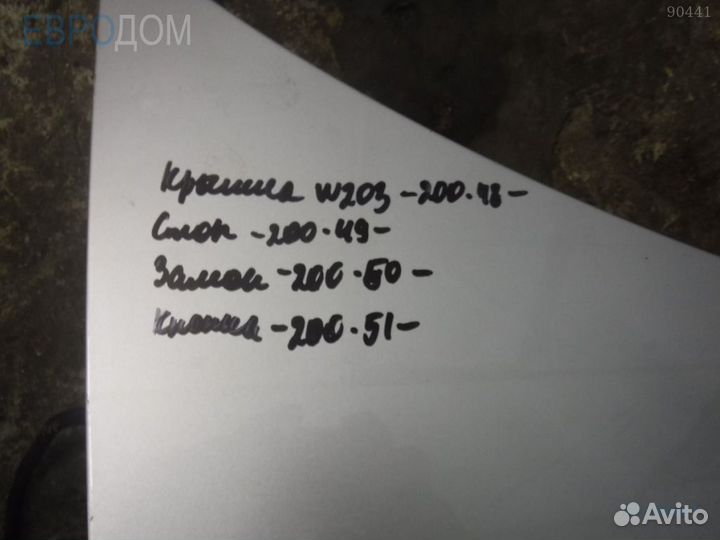 ЕВРОДОМ
90441
Крышка W203 -200.48-
Стоп -200.49-
Замок -200.50-
Кнопка -200.51-
Avito